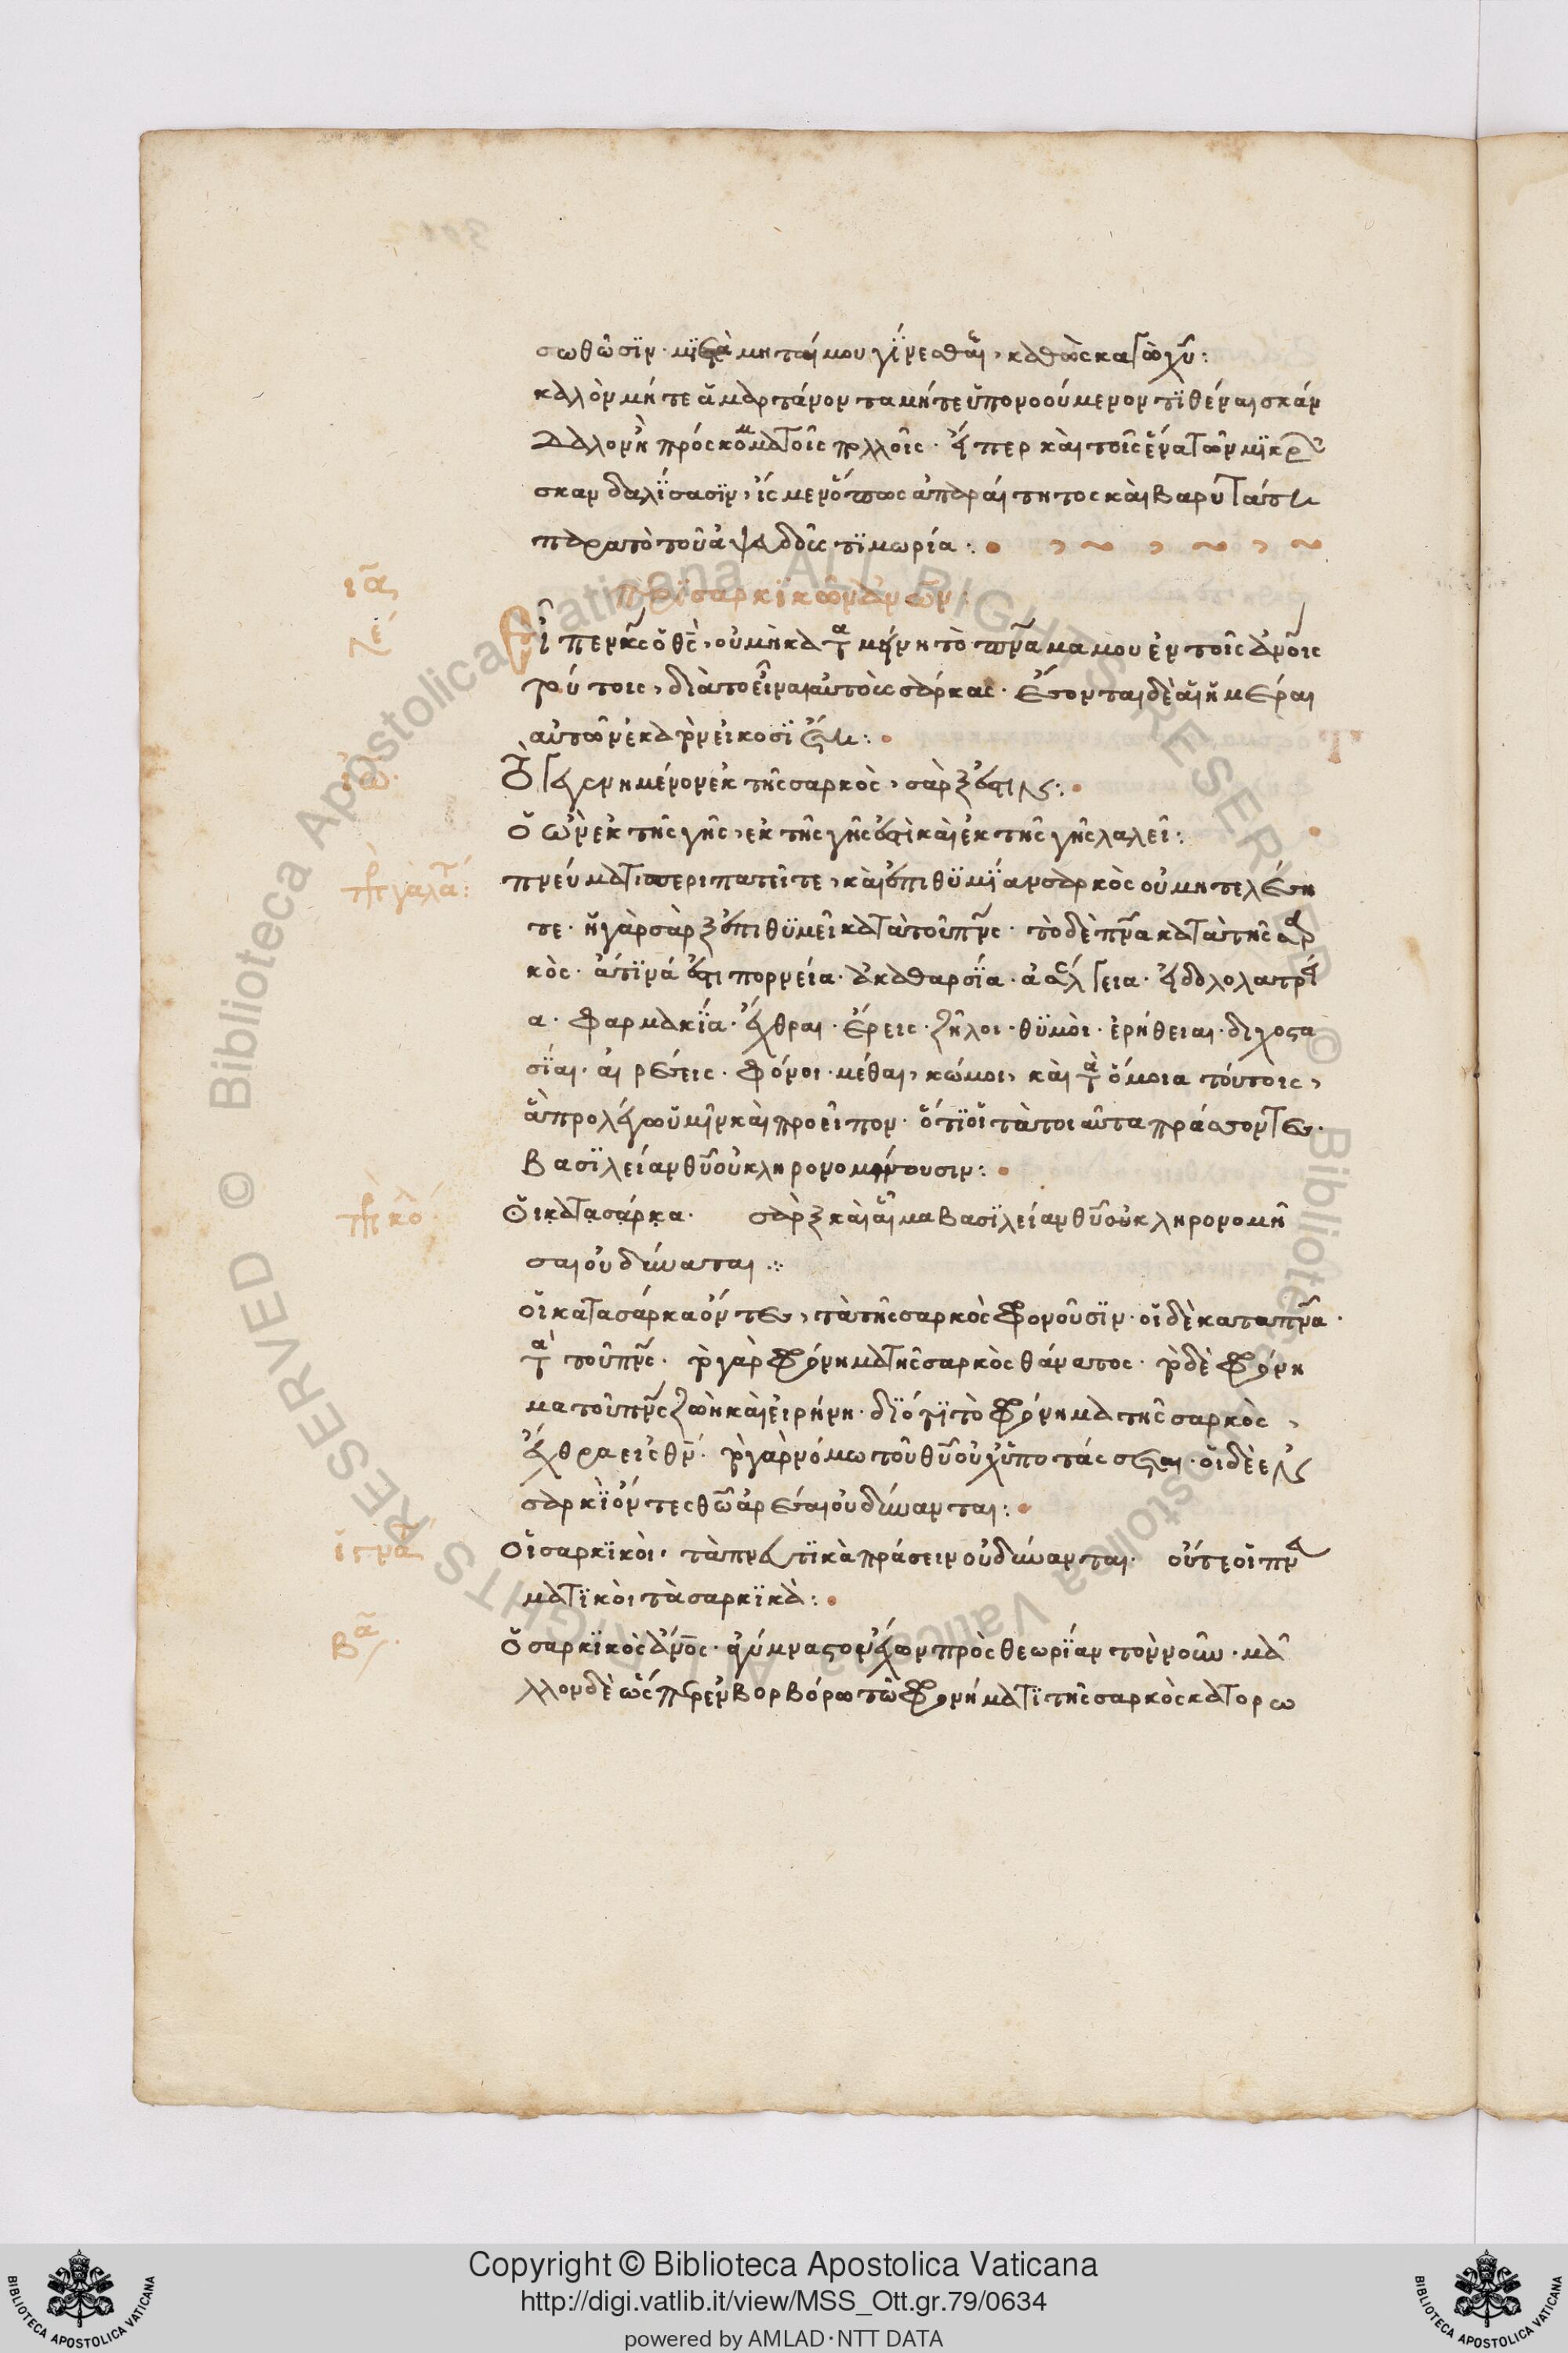 σωθῶσϊν· μϊμηταί μου γΐνεσθαι, καθὼς καγὼ χυ:
καλὸν μήτε ἁμαρτάνοντα μήτε ὑπονοούμενον τϊθέναι σκάν
δαλον ἢ πρόσκομμα τοῖς πολλοῖς· εἴπερ καὶ τοῖς ἕνα τῶν μϊκρῶν
σκανδαλΐσασϊν, εἷς μὲν ὄντως ἀπαραίτητος καὶ βαρυτάτη
παρὰ τὸ τοῦ ἀψευδοῦς τϊμωρία:
ιᾶ
Περὶ σαρκϊκῶν ἀνων:
γε
Εἶπεν κς ὁ θς, οὐ μὴ καταμείνη τὸ πνα μα μου ἐν τοῖς ἀνοις
τούτοις, διὰ τὸ εἶναι αὐτοὺς σάρκας· ἔσονται δὲ αἱ ἡμέραι
αὐτῶν ἑκατὸν εἰκοσϊ ἔτη:
Τὸ γεγενημένον ἐκ τῆς σαρκὸς, σάρξ ἐστιν:
ὁ ὢν ἐκ τῆς γῆς, ἐκ τῆς γῆς ἐστὶ καὶ ἐκ τῆς γῆς λαλεῖ:
πρ γαλατ:
πνεύματι περιπατεῖτε, καὶ ἐπιθϋμΐαν σαρκὸς οὐ μὴ τελέση
τε· ἡ γὰρ σὰρξ ἐπιθϋμεῖ κατὰ τοῦ πνς· τὸ δὲ πνα κατὰ τῆς σαρ
κὸς· ἅτϊνά ἐστι πορνεία· ἀκαθαρσΐα· ἀσέλγεια· εἰδολολατρεί
α· φαρμακΐα· ἔχθραι· ἔρεις· ζῆλοι· θϋμοὶ· ἐρήθειαι· διχοστα
σΐαι· αἱρέσεις· φόνοι· μέθαι, κῶμοι, καὶ τὰ ὅμοια τούτοις,
ἃ προλέγω ὑμῖν καὶ προεῖπον· ὅτϊ οἱ τὰ τοιαῦτα πράσσοντες·
βασϊλείαν θυ οὐ κληρονομήσουσιν:
πρ κο
Οἱ κατα σάρκα· σὰρξ καὶ αἷμα βασϊλείαν θυ οὐ κληρονομῆ
σαι οὐ δύναται:
οἱ κατα σάρκα ὄντες, τὰ τῆς σαρκὸς φρονοῦσϊν· οἱ δὲ κατα πνα·
τὰ τοῦ πνς· τὸ γὰρ φρόνημα τῆς σαρκὸς θάνατος· τὸ δὲ φρόνη
μα τοῦ πνς ζωὴ καὶ εἰρήνη· δϊότϊ τὸ φρόνημα τῆς σαρκὸς,
ἔχθρα εἰς θν· τῷ γὰρ νόμω τοῦ θυ οὐχ ὑποτάσσεται· οἱ δὲ ἐν
σαρκϊ ὄντες θω ἀρέσαι οὐ δύνανται:
Οἱ σαρκϊκοὶ· τὰ πνευτϊκὰ πράσειν οὐ δύνανται· οὔτε οἱ πνευ
ματϊκοὶ τὰ σαρκϊκά:
Ὁ σαρκϊκὸς ἀνος· ἀγύμναστον ἔχων πρὸς θεωρΐαν τὸν νοῦν· μᾶ
λλον δὲ ὥσπερ ἐν βορβόρω τῶ φρονήματϊ τῆς σαρκὸς κατορω
Copyright © Biblioteca Apostolica Vaticana
http://digi.vatlib.it/view/MSS_Ott.gr.79/0634
powered by AMLAD·NTT DATA